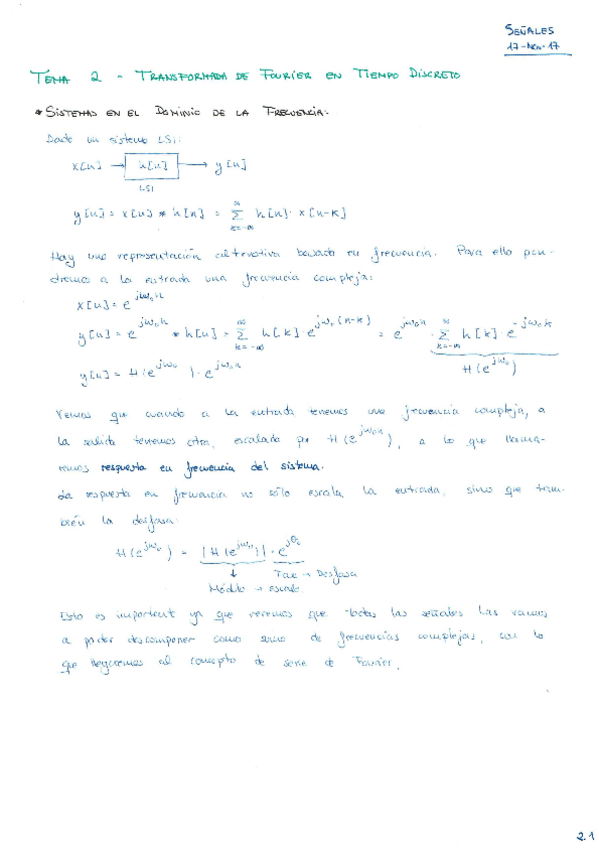 SEÑALES
17-Nov-17
TEMA 2 - TRANSFORMADA DE FOURIER EN TIEMPO DISCRETO
* SISTEMAS EN EL DOMINIO DE LA FRECUENCIA.
Dado un sistema LSI:
x[n] → h[n] → y[n]
LSI
y[n] = x[n] * h[n] = ∑_{k=-∞}^{∞} h[n] · x[n-k]
Hay una representación alternativa basada en frecuencia. Para ello pon-
dremos a la entrada una frecuencia compleja:
x[n] = e^{jω₀n}
y[n] = e^{jω₀n} * h[n] = ∑_{k=-∞}^{∞} h[k] · e^{jω₀(n-k)} = e^{jω₀n} · ∑_{k=-∞}^{∞} h[k] · e^{-jω₀k}
H(e^{jω₀})
y[n] = H(e^{jω₀}) · e^{jω₀n}
Vemos que cuando a la entrada tenemos una frecuencia compleja, a
la salida tenemos otra, escalada por H(e^{jω₀n}), a lo que llama-
remos respuesta en frecuencia del sistema.
La respuesta en frecuencia no sólo escala la entrada, sino que tam-
bién la desfasa:
H(e^{jω₀}) = |H(e^{jω₀})| · e^{jθ}
Fase → Desfasa
Módulo → Escala
Esto es important ya que veremos que todas las señales las vamos
a poder descomponer como suma de frecuencias complejas, con lo
que llegaremos al concepto de serie de Fourier.
2.1